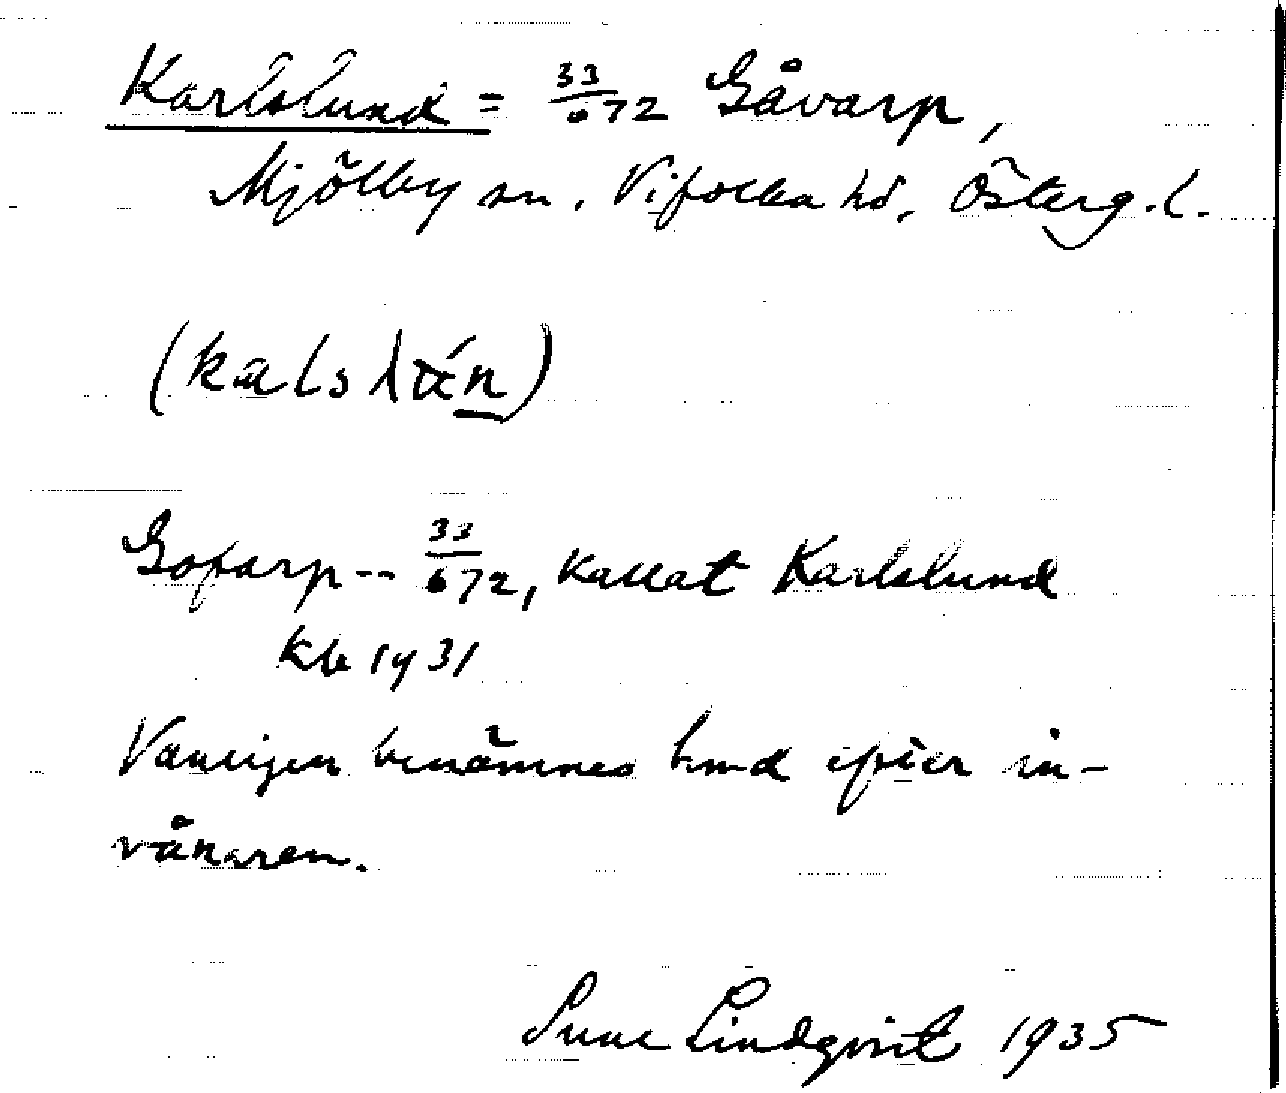 Karlslund = 33/672 Gåvarp,
Mjölby sn, Vifolka hd, Österg.l.
(kalslán)
Gofarp -- 33/672, kallat Karlslund
Kb 1931
Vanligen benämnes hmd efter in-
vånaren.
Sune Lindqvist 1935